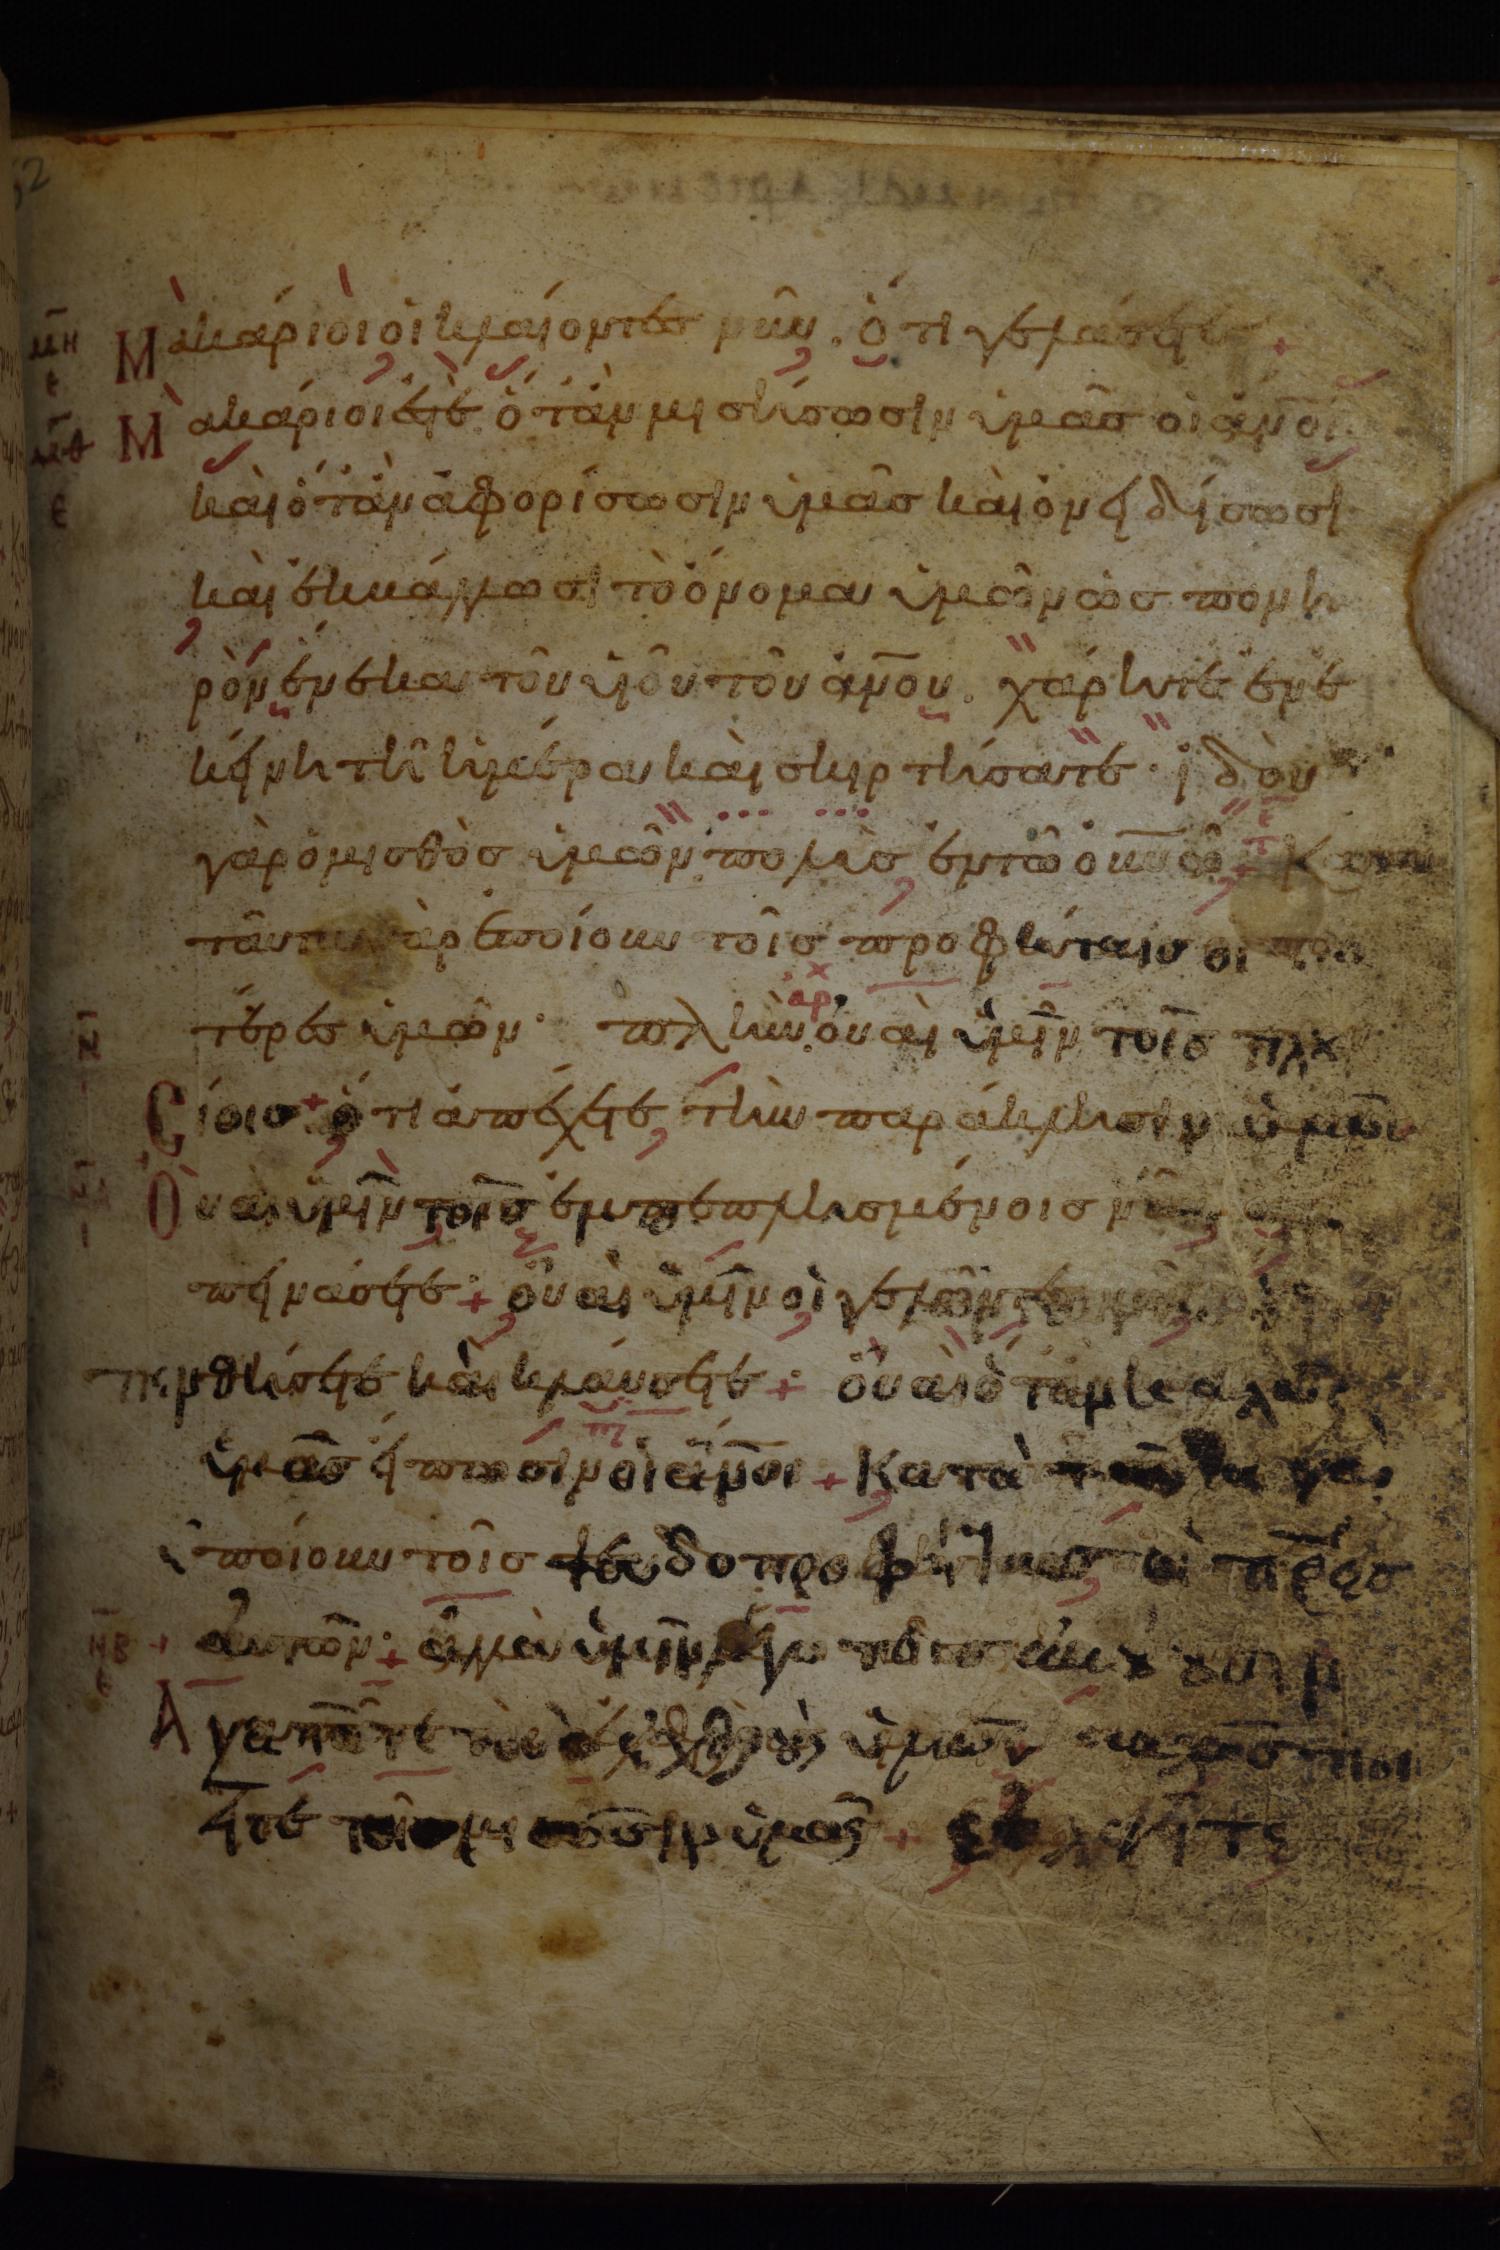 Μακάριοι οἱ κλαίοντες νῦν. ὅτι γελάσετε +
Μακάριοί ἐστε ὅταν μισήσωσιν ὑμᾶς οἱ ἄνοι.
καὶ ὅταν ἀφορίσωσιν ὑμᾶς καὶ ὀνειδίσωσι
καὶ ἐκβάλλωσι τὸ ὄνομα ὑμῶν ὡς πονη
ρὸν ἕνεκα τοῦ υἱοῦ τοῦ ἀνου. χάρητε ἐν ἐ
κείνη τῆ ἡμέρα καὶ σκιρτήσατε· ἰδοὺ
γὰρ ὁ μισθὸς ὑμῶν πολὺς ἐν τῶ οὐνω + Κατὰ
ταῦτα γὰρ ἐποίουν τοῖς προφήταις οἱ πα
τέρες ὑμῶν· πλὴν οὐαὶ ὑμῖν τοῖς πλου
σίοις + ὅτι ἀπέχετε τὴν παράκλησιν ὑμῶν
Οὐαὶ ὑμῖν τοῖς ἐμπεπλησμένοις νῦν ὅτι
πεινάσετε· + οὐαὶ ὑμῖν οἱ γελῶντες νῦν ὅτι
πενθήσετε καὶ κλαύσετε + οὐαὶ ὅταν καλῶς
ὑμᾶς εἴπωσιν οἱ ἄνοι + Κατὰ ταῦτα γὰρ
ἐποίουν τοῖς ψευδοπροφήταις οἱ πρες
αὐτῶν· + ἀλλὰ ὑμῖν λέγω τοῖς ἀκούουσιν
Ἀγαπᾶτε τοὺς ἐχθροὺς ὑμῶν καλῶς ποι
εῖτε τοῖς μισοῦσιν ὑμᾶς + εὐλογεῖτε